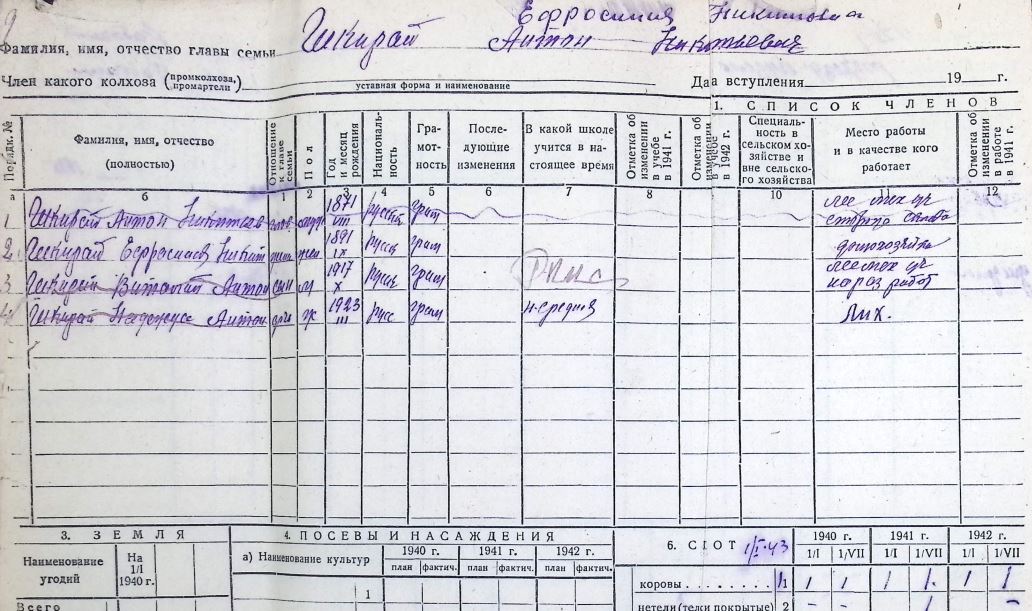 Ефросиния Никитовна
Фамилия, имя, отчество главы семьи Шкирай Антон Никитьевич
Член какого колхоза (промколхоза, промартели)
уставная форма и наименование
Да а вступления 19 г.
1. СПИСОК ЧЛЕНОВ
Порядк. №
Фамилия, имя, отчество (полностью)
Отношение к главе семьи
Пол
Год и месяц рождения
Националь-ность
Гра-мот-ность
После-дующие изменения
В какой школе учится в на-стоящее время
Отметка об изменении в учебе в 1941 г.
Отметка об изменении в учебе в 1942 г.
Специаль-ность в сельском хо-зяйстве и вне сельско-го хозяйства
Место работы и в качестве кого работает
Отметка об изменении в работе в 1941 г.
а б 1 2 3 4 5 6 7 8 10 11 12
1 Шкирай Антон Никитьев 1871 VIII русск грам
2 Шкирай Ефросиния Никит жен 1891 IX русск грам домохозяйка
3 Шкирай Виталий Антон сын м 1917 X русск грам
4 Шкирай Надежда Антон ж 1923 III русс грам н-средняя
3. ЗЕМЛЯ
Наименование угодий
На 1/I 1940 г.
Всего
4. ПОСЕВЫ И НАСАЖДЕНИЯ
а) Наименование культур
1940 г. 1941 г. 1942 г.
план фактич. план фактич. план фактич.
1
6. С ОТ 1/I-43
1940 г. 1941 г. 1942 г.
1/I 1/VII 1/I 1/VII 1/I 1/VII
коровы 1 1 1 1 1 1 1
нетели (телки покрытые) 2 - - 1 -